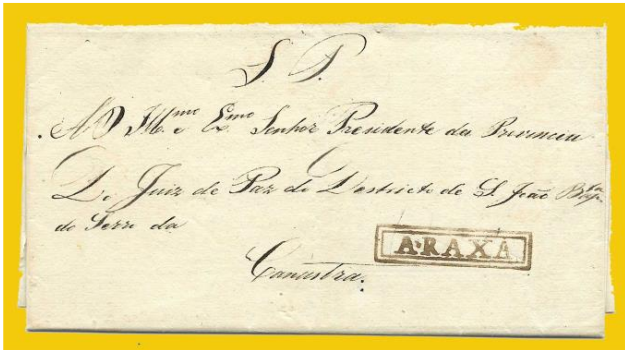 S. P.
Ao Illmo. e Exmo. Senhor Presidente da Provincia
Do Juiz de Paz do Destricto de S. João Bapta
do Serro da
Canastra.
ARAXÁ